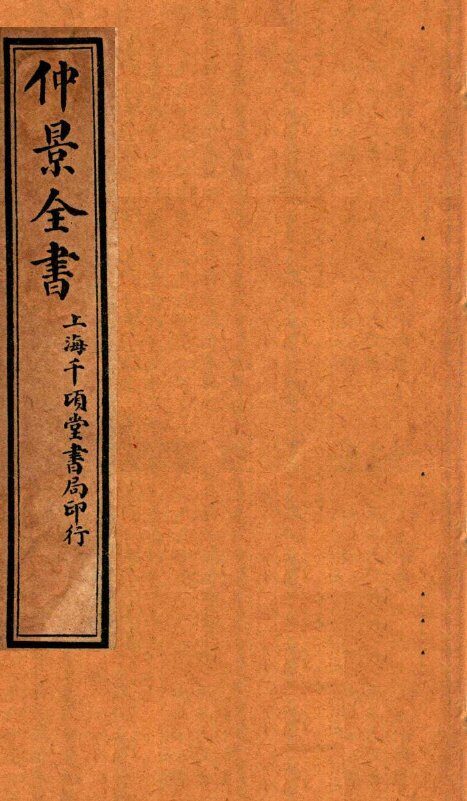 仲景全書
上海千頃堂書局印行